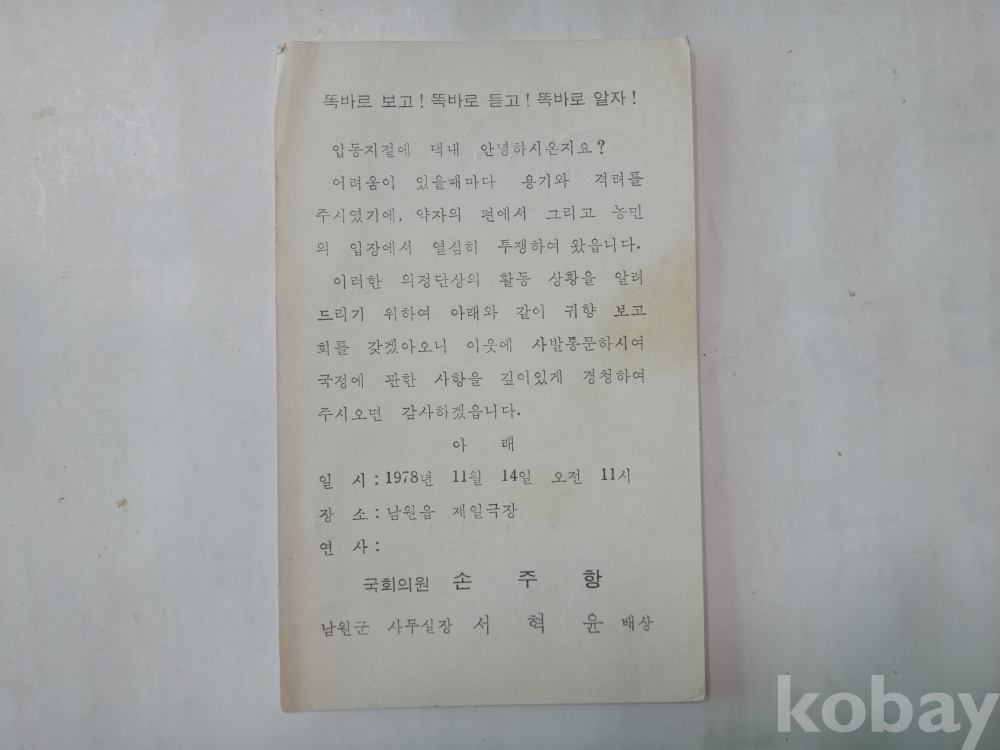 똑바로 보고! 똑바로 듣고! 똑바로 알자!
입동지절에 댁내 안녕하시온지요?
어려움이 있을때마다 용기와 격려를
주시였기에, 약자의 편에서 그리고 농민
의 입장에서 열심히 투쟁하여 왔읍니다.
이러한 의정단상의 활동 상황을 알려
드리기 위하여 아래와 같이 귀향 보고
회를 갖겠아오니 이웃에 사발통문하시여
국정에 관한 사항을 깊이있게 경청하여
주시오면 감사하겠읍니다.
아 래
일 시 : 1978년 11월 14일 오전 11시
장 소 : 남원읍 제일극장
연 사 :
국회의원 손 주 항
남원군 사무실장 서 혁 윤 배상
kobay